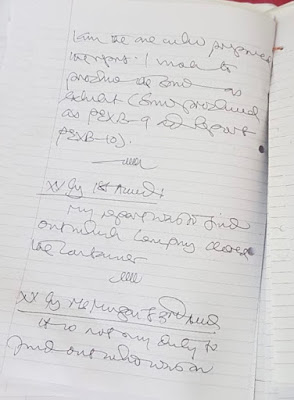 I am the one who prepared
the report. I wish to
produce it and as
exhibit (Same produced
as PEXB-9 and Report
PEXB-10).
XX by 1st Accused:
My report was to find
out which Company owned
the Container
XX by Mr 3rd Accd
it is not my duty to
find out who was on